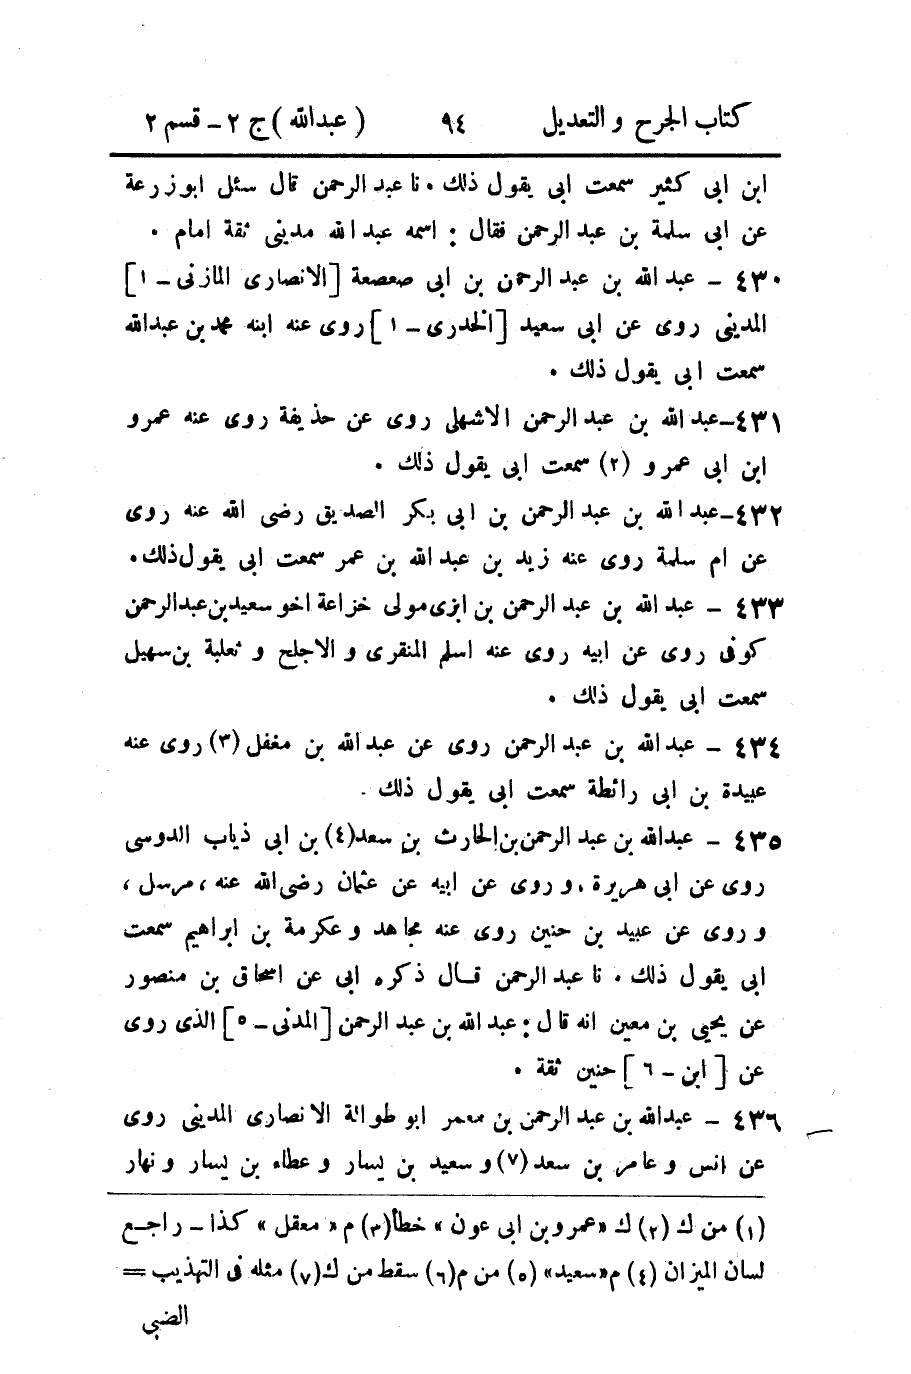 كتاب الجرح و التعديل ٩٤ (عبدالله) ج ٢ - قسم ٢
ابن ابى كثير سمعت ابى يقول ذلك . نا عبد الرحمن قال سئل ابوزرعة
عن ابى سلمة بن عبد الرحمن فقال : اسمه عبد الله مدينى ثقة امام .
٤٣٠ - عبد الله بن عبد الرحمن بن ابى صعصعة [الانصارى المازنى - ١]
المدينى روى عن ابى سعيد [الخدرى - ١] روى عنه ابنه محمد بن عبدالله
سمعت ابى يقول ذلك .
٤٣١ - عبد الله بن عبد الرحمن الاشهلى روى عن حذيفة روى عنه عمرو
ابن ابى عمرو (٢) سمعت ابى يقول ذلك .
٤٣٢ - عبد الله بن عبد الرحمن بن ابى بكر الصديق رضى الله عنه روى
عن ام سلمة روى عنه زيد بن عبد الله بن عمر سمعت ابى يقول ذلك .
٤٣٣ - عبد الله بن عبد الرحمن بن ابزى مولى خزاعة اخو سعيد بن عبدالرحمن
كوفى روى عن ابيه روى عنه اسلم المنقرى و الاجلح و ثعلبة بن سهيل
سمعت ابى يقول ذلك .
٤٣٤ - عبد الله بن عبد الرحمن روى عن عبد الله بن مغفل (٣) روى عنه
عبيدة بن ابى رائطة سمعت ابى يقول ذلك .
٤٣٥ - عبدالله بن عبد الرحمن بن الحارث بن سعد (٤) بن ابى ذياب الدوسى
روى عن ابى هريرة ، و روى عن ابيه عن عثمان رضى الله عنه ، مرسل ،
و روى عن عبيد بن حنين روى عنه مجاهد و عكرمة بن ابراهيم سمعت
ابى يقول ذلك . نا عبد الرحمن قال ذكره ابى عن اسحاق بن منصور
عن يحيى بن معين انه قال : عبد الله بن عبد الرحمن [المدنى - ٥] الذى روى
عن [ابن - ٦] حنين ثقة .
٤٣٦ - عبدالله بن عبد الرحمن بن معمر ابو طوالة الانصارى المدينى روى
عن انس و عامر بن سعد (٧) و سعيد بن يسار و عطاء بن يسار و نهار
(١) من ك (٢) ك «عمرو بن ابى عون» خطأ (٣) م «معقل» كذا - راجع
لسان الميزان (٤) م «سعيد» (٥) من م (٦) سقط من ك (٧) مثله فى التهذيب =
الضبى